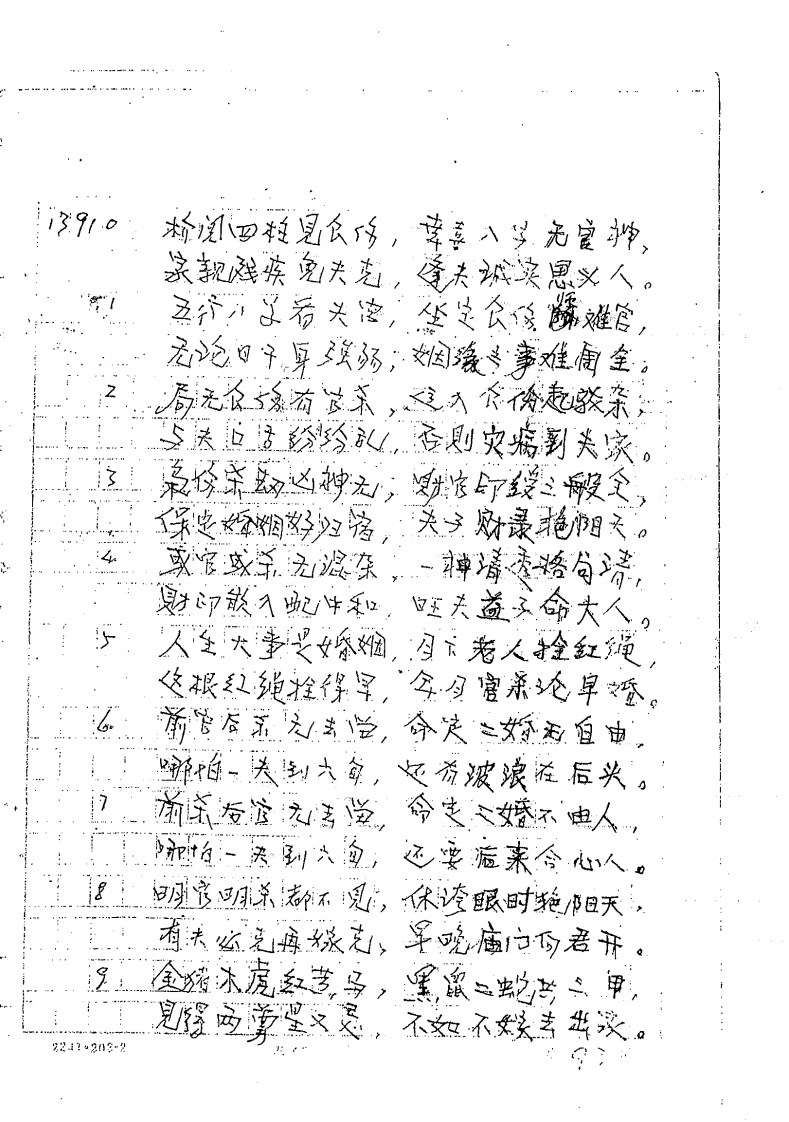 13910 桥闭四柱见食伤，幸喜八字无官神，
家亲残疾免夫克，逢夫诚实恩义人。
1 五行八字看夫法，坐定食伤难官，
无论日干身强弱，姻缘之事难周全。
2 局无食伤有官杀，运入食伤起驳杂，
与夫口舌纷纷乱，否则灾病到夫家。
3 枭伤杀劫凶神无，财官印绶三般全，
保定婚姻好归宿，夫子财录艳阳天。
4 或官或杀无混杂，一神清秀格局清，
财印散入配中和，旺夫益子命大人。
5 人生大事是婚姻，月下老人拴红绳，
这根红绳拴得早，年月官杀论早婚。
6 前官后杀无去留，命定二婚不自由，
哪怕一夫到六旬，还有波浪在后头。
7 前杀后官无去留，命走之婚不由人，
哪怕一夫到六旬，还要后来合心人。
8 明官明杀都不见，休夸眼时艳阳天，
有夫必克再嫁克，早晚庙门何君开。
9 金猪木虎红苦马，黑鼠二蛇共三甲，
见得两 是又是，不如不嫁去 。
22-11·203-2